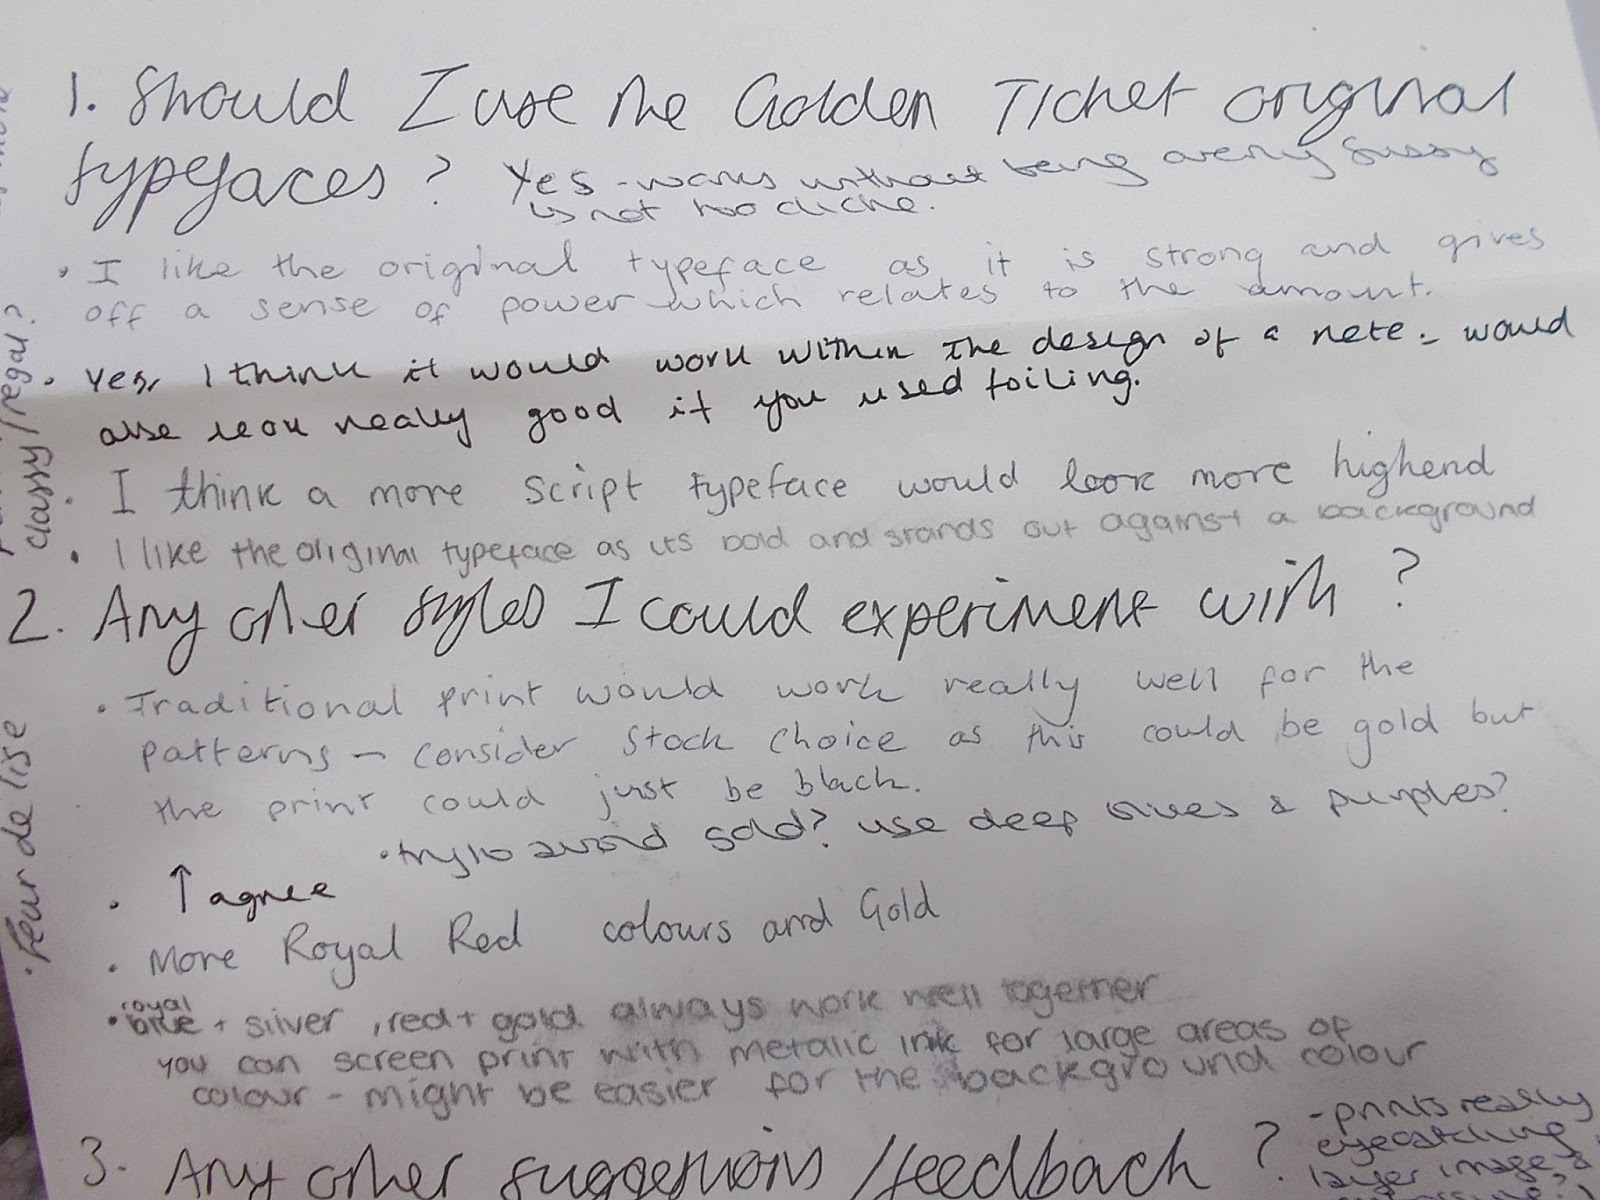 1. Should I use the Golden Ticket original
typefaces? Yes - works without being overly fussy
is not too cliche.
• I like the original typeface as it is strong and gives
off a sense of power which relates to the amount.
• Yes, I think it would work within the design of a note - would
also look really good if you used foiling.
• I think a more script typeface would look more highend
• I like the original typeface as its bold and stands out against a background
2. Any other styles I could experiment with?
• Traditional print would work really well for the
patterns - consider stock choice as this could be gold but
the print could just be black.
• try to avoid gold? use deep blues & purples?
• ↑ agree
• More Royal Red colours and Gold
• royal blue + silver, red + gold always work well together
you can screen print with metalic ink for large areas of
colour - might be easier for the background colour
3. Any other suggestions/feedback?
- prints really
eyecatching
layer image,
classy/regal?
• Feur de lise